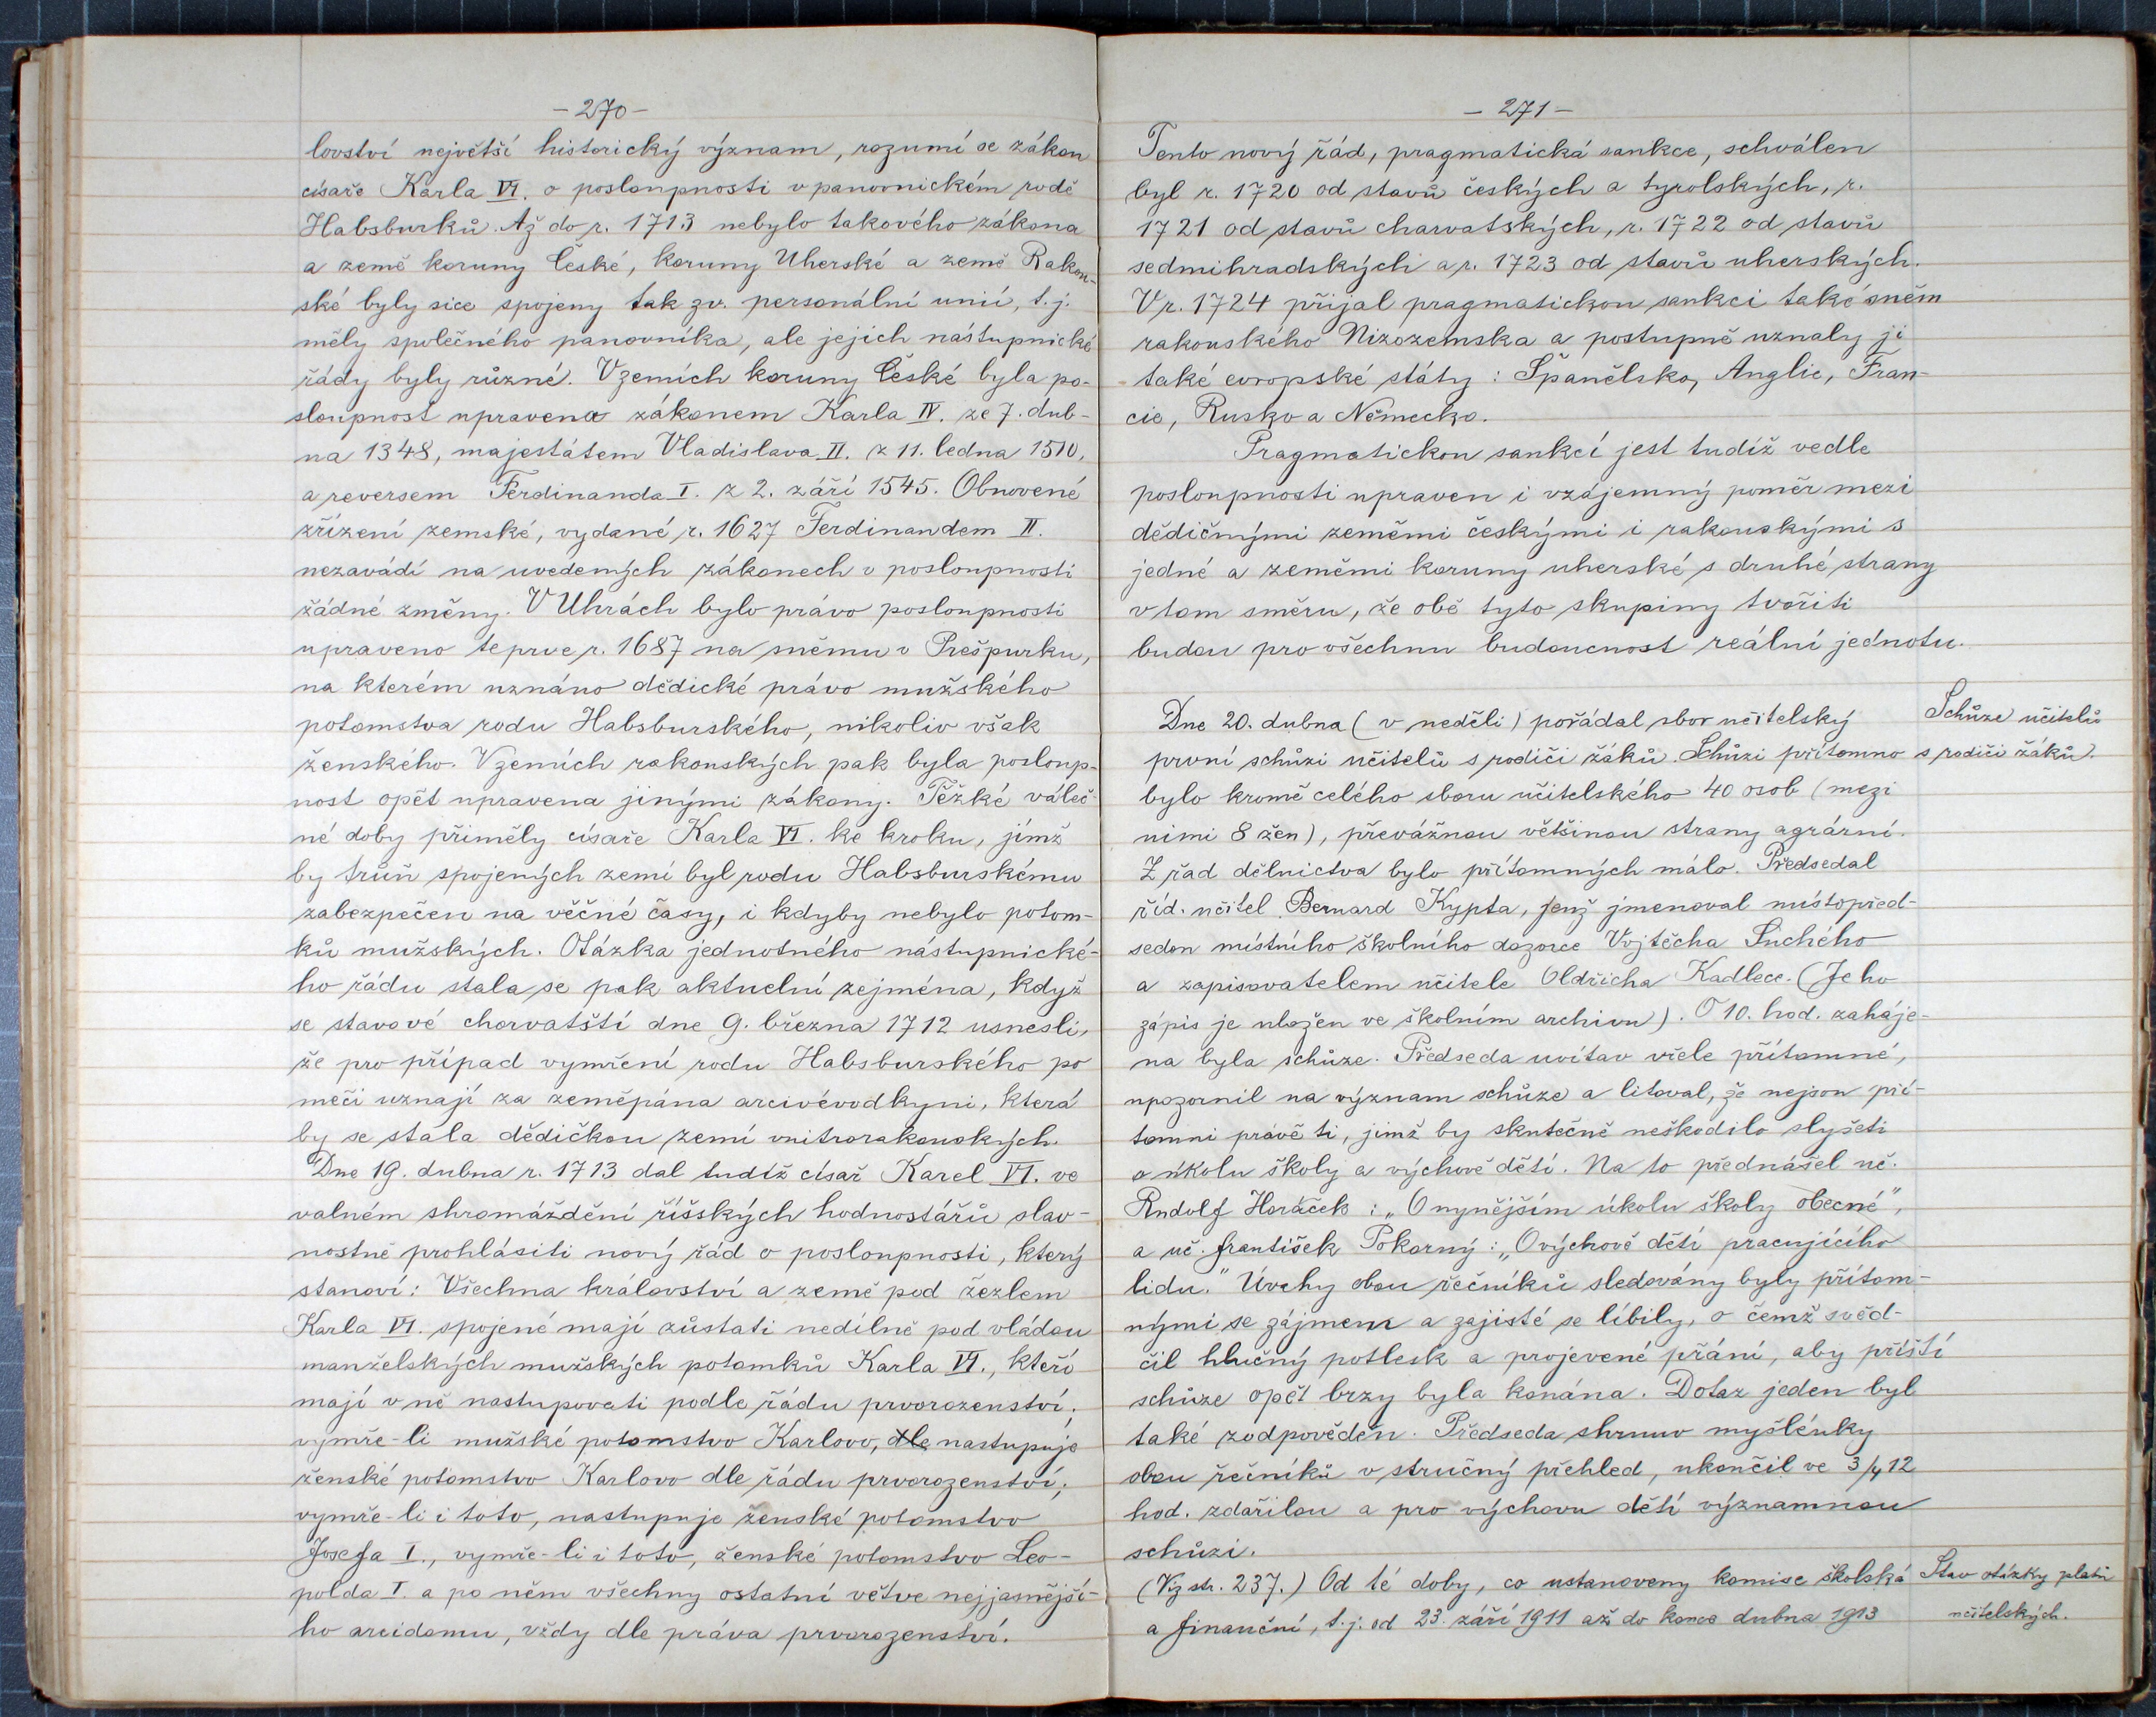 - 270 -
lovství největší historický význam, rozumí se zákon
císaře Karla VI. o posloupnosti v panovnickém rodě
Habsburků. Až do r. 1713 nebylo takového zákona
a země koruny České, koruny Uherské a země Rakou-
ské byly sice spojeny tak zv. personální unií, t.j.
měly společného panovníka, ale jejich nástupnické
řády byly různé. V zemích koruny České byla po-
sloupnost upravena zákonem Karla IV. ze 7. dub-
na 1348, majestátem Vladislava II. z 11. ledna 1510,
a reversem Ferdinanda I. z 2. září 1545. Obnovené
zřízení zemské, vydané r. 1627 Ferdinandem II.
nezavádí na uvedených zákonech o posloupnosti
žádné změny. V Uhrách bylo právo posloupnosti
upraveno teprve r. 1687 na sněmu v Prešpurku,
na kterém uznáno dědické právo mužského
potomstva rodu Habsburského, nikoliv však
ženského. V zemích rakouských pak byla posloup-
nost opět upravena jinými zákony. Těžké váleč-
né doby přiměly císaře Karla VI. ke kroku, jímž
by trůn spojených zemí byl rodu Habsburskému
zabezpečen na věčné časy, i kdyby nebylo potom-
ků mužských. Otázka jednotného nástupnické-
ho řádu stala se pak aktuelní zejména, když
se stavové chorvatští dne 9. března 1712 usnesli,
že pro případ vymření rodu Habsburského po
meči uznají za zeměpána arcivévodkyni, která
by se stala dědičkou zemí vnitrorakouských.
Dne 19. dubna r. 1713 dal tudíž císař Karel VI. ve
valném shromáždění říšských hodnostářů slav-
nostně prohlásiti nový řád o posloupnosti, který
stanoví: Všechna království a země pod žezlem
Karla VI. spojené mají zůstati nedílně pod vládou
manželských mužských potomků Karla VI., kteří
mají v ně nastupovati podle řádu prvorozenství;
vymře-li mužské potomstvo Karlovo, dle nastupuje
ženské potomstvo Karlovo dle řádu prvorozenství;
vymře-li i toto, nastupuje ženské potomstvo
Josefa I., vymře-li i toto, ženské potomstvo Leo-
polda I. a po něm všechny ostatní větve nejjasnější-
ho arcidomu, vždy dle práva prvorozenství.
- 271 -
Tento nový řád, pragmatická sankce, schválen
byl r. 1720 od stavů českých a tyrolských, r.
1721 od stavů charvatských, r. 1722 od stavů
sedmihradských a r. 1723 od stavů uherských.
V r. 1724 přijal pragmatickou sankci také sněm
rakouského Nizozemska a postupně uznaly ji
také evropské státy: Španělsko, Anglie, Fran-
cie, Rusko a Německo.
Pragmatickou sankcí jest tudíž vedle
posloupnosti upraven i vzájemný poměr mezi
dědičnými zeměmi českými i rakouskými s
jedné a zeměmi koruny uherské s druhé strany
v tom směru, že obě tyto skupiny tvořiti
budou pro všechnu budoucnost reální jednotu.
Dne 20. dubna (v neděli) pořádal sbor učitelský
první schůzi učitelů s rodiči žáků. Schůzi přítomno
bylo kromě celého sboru učitelského 40 osob (mezi
nimi 8 žen), převážnou většinou strany agrární.
Z řad dělnictva bylo přítomných málo. Předsedal
říd. učitel Bernard Kypta, jenž jmenoval místopřed-
sedou místního školního dozorce Vojtěcha Suchého
a zapisovatelem učitele Oldřicha Kadlece. (Jeho
zápis je uložen ve školním archivu). O 10. hod. zaháje-
na byla schůze. Předseda uvítav vřele přítomné,
upozornil na význam schůze a litoval, že nejsou pří-
tomni právě ti, jimž by skutečně neškodilo slyšeti
o úkolu školy a výchově dětí. Na to přednášel uč.
Rudolf Horáček: „O nynějším úkolu školy obecné",
a uč. František Pokorný: „O výchově dětí pracujícího
lidu." Úvahy obou řečníků sledovány byly přítom-
nými se zájmem a zajisté se líbily, o čemž svěd-
čil hlučný potlesk a projevené přání, aby příští
schůze opět brzy byla konána. Dotaz jeden byl
také zodpověděn. Předseda shrnuv myšlénky
obou řečníků v stručný přehled, ukončil ve 3/4 12
hod. zdařilou a pro výchovu dětí významnou
schůzi.
(Viz str. 237.) Od té doby, co ustanoveny komise školská
a finanční, t.j. od 23. září 1911 až do konce dubna 1913
Schůze učitelů
s rodiči žáků.
Stav otázky platů
učitelských.